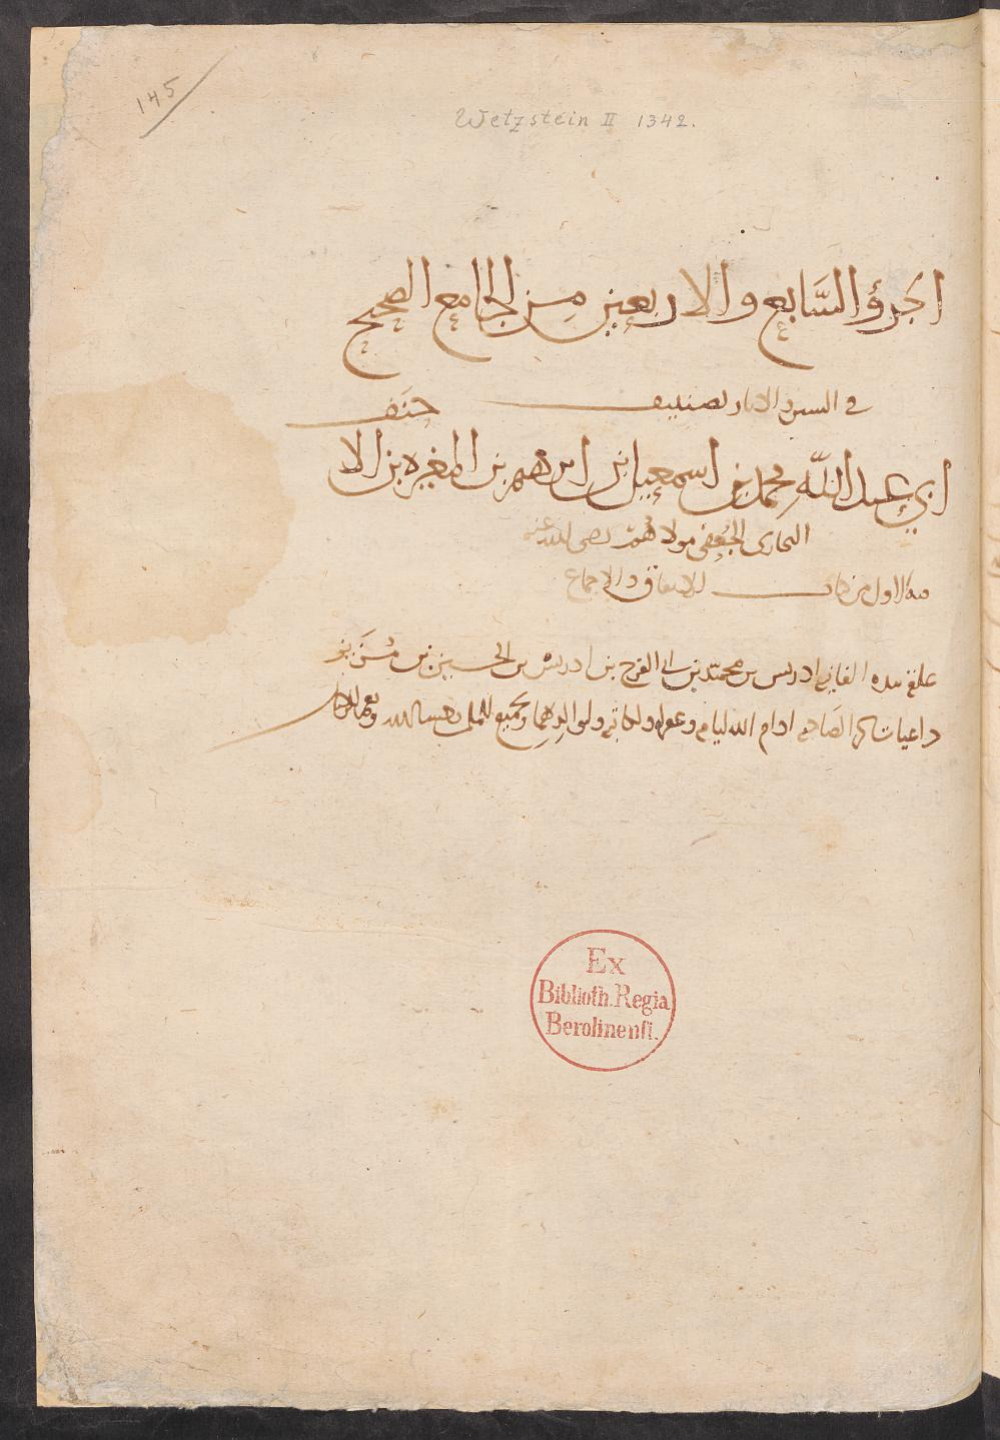 145
Wetzstein II 1342.
الجزؤ السَّابع والاربعين مِن الجامع الصحيح
في السنن والاثار تصنيف
ابي عبد اللّه محمد بن اسمعيل بن ابرهيم بن المغيره بن الا
حنف
البخارى الجُعفي مولاهُم رضى الله عنه
الاول من الاتفاق والاجماع
علقه بيده الفانيه ادريس بن محمد بن ابي الفرج بن ادريس بن الحسين بن مُزَيز
داعيا لصاحبه ادام الله ايامه ولكاتبه ولوالديهما ولجميع المسلمين حسبنا الله ونعم الوكيل
Ex
Biblioth. Regia
Berolinensi.